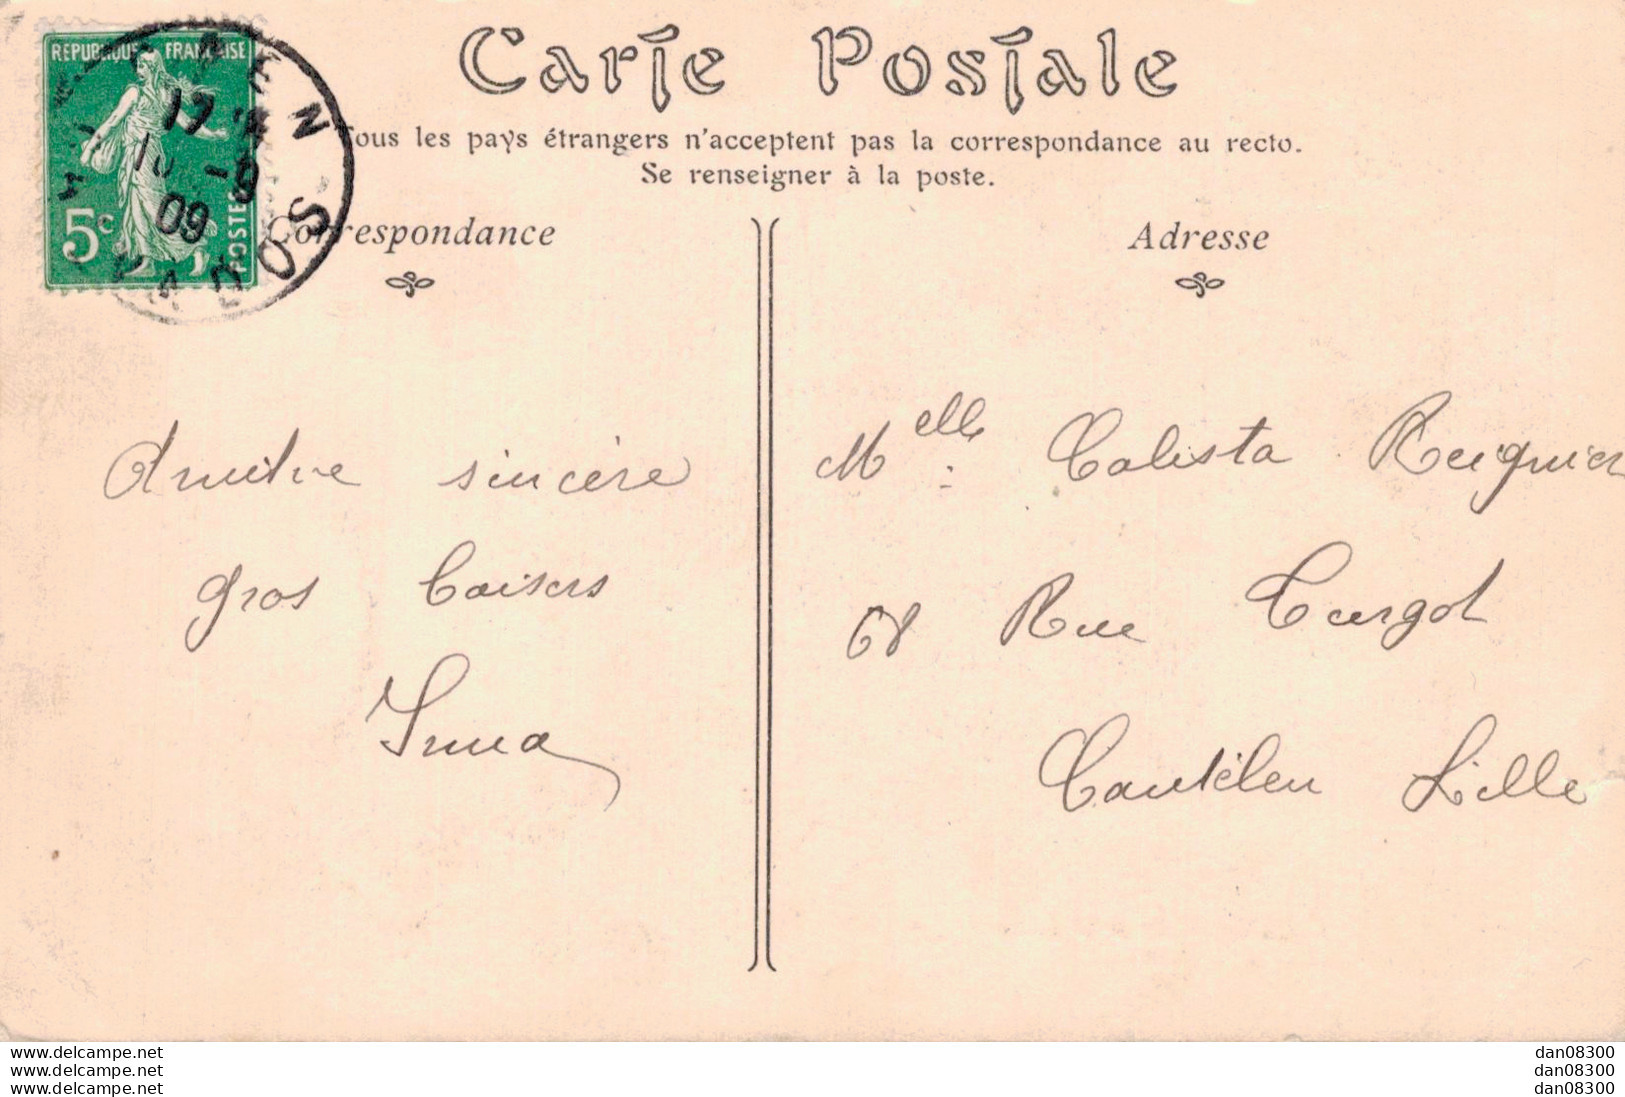 REPUBLIQUE FRANÇAISE
5c
POSTES
17
10
09
CALVADOS
Carte Postale
Tous les pays étrangers n'acceptent pas la correspondance au recto.
Se renseigner à la poste.
Correspondance
Adresse
Amitié sincère
gros baisers
Irma
Melle Calista Reignier
68 Rue Turgot
Cantéleu Lille
www.delcampe.net
www.delcampe.net
www.delcampe.net
dan08300
dan08300
dan08300